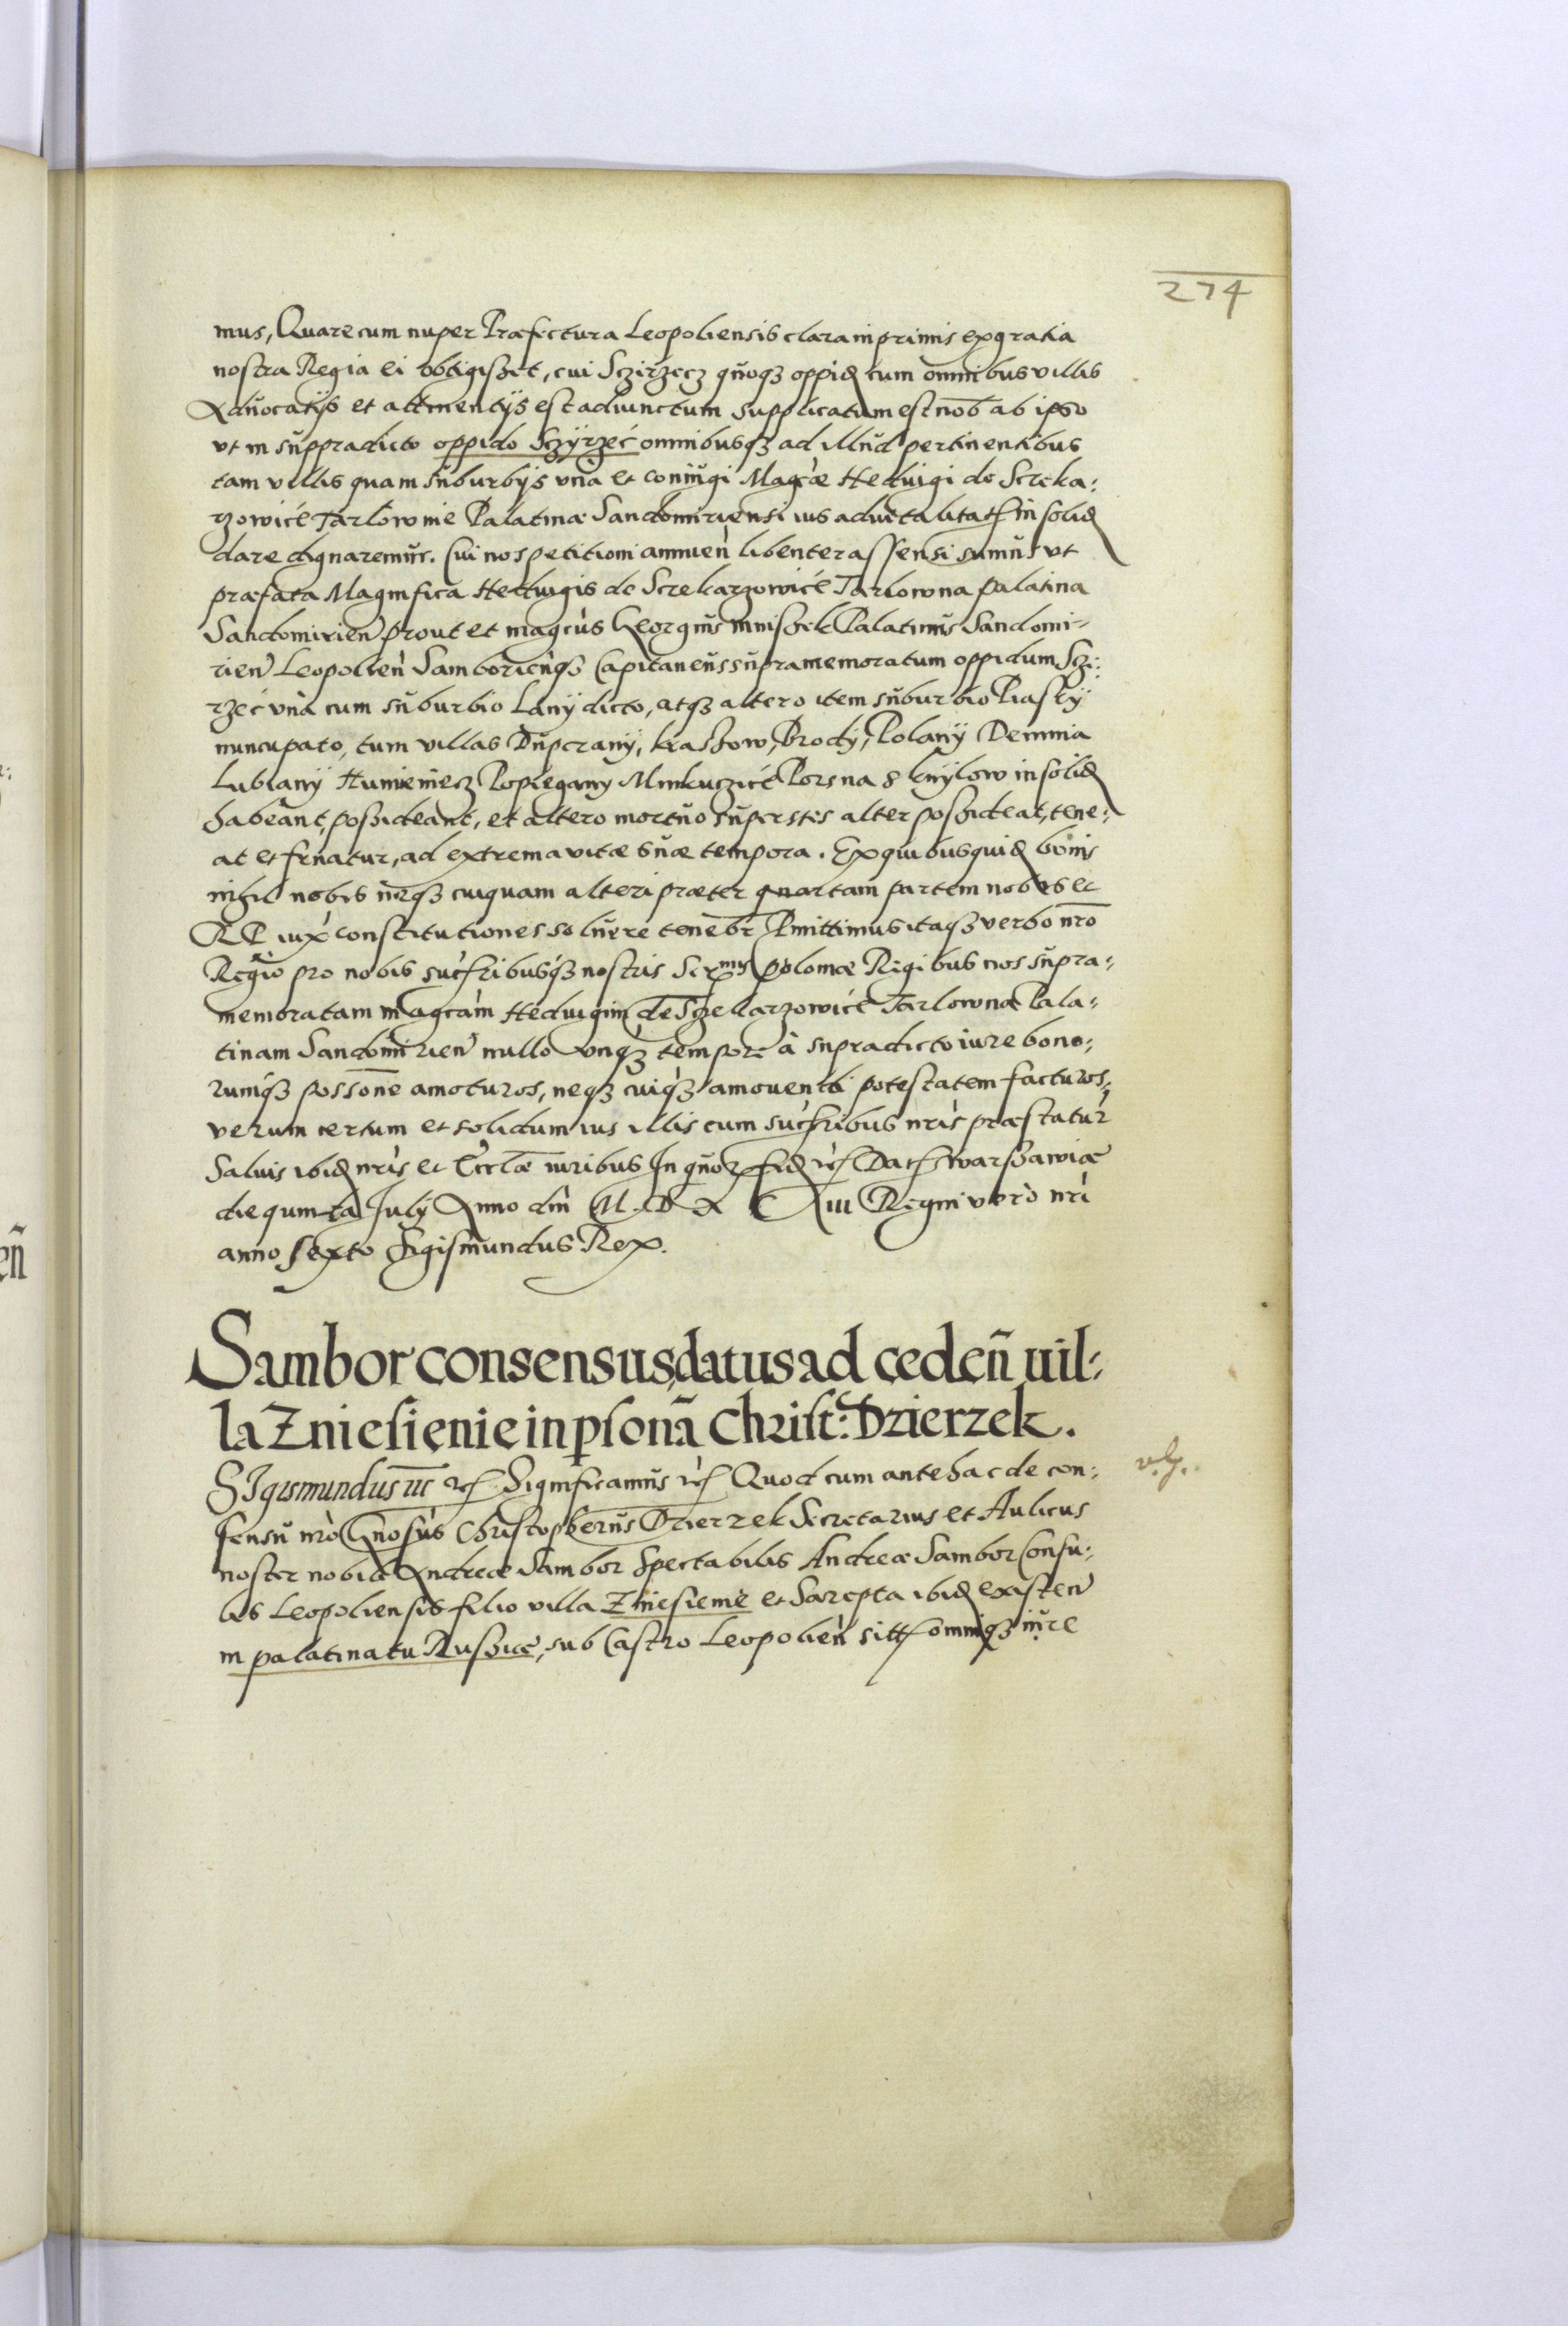 274
mus, Quare cum nuper Præfectura Leopoliensis clara inprimis ex gratia
nostra Regia ei obtigiszet, cui Sczirzecz quoqȝ oppid cum omnibus villis
Aduocatijs et attinentijs est adiunctum supplicatum est nob ab ipso
vt in suppradicto oppido Sczÿrzec omnibusqȝ ad illud pertinentibus
tam villis quam suburbijs vna et coniugi Magcæ Heduigi de Screka:
rzowicé Tarlownie Palatinæ Sandomiriensi ius aduitalitat in solid
dare dignaremur. Cui nos petitioni annuen libenter assensi sumus vt
præfata Magnifica Heduigis de Screkarzowicé Tarlowna palatina
Sandomirien prout et magcus Georgius mniszek Palatinus Sandomi-
rien Leopolien Samboricnqȝ Capitaneus supramemoratum oppidum Sczi:
rzéc vnà cum suburbio Lanÿ dicto, atqȝ altero item suburbio Piaskÿ
nuncupato, tum villas Dupczanÿ, kraszow, Brodÿ, Polanÿ Demnia
Lubianÿ Humieniecz Popiegany Minkuczicé Porsna & knÿlow in solid
habeant, poszideant, et altero mortuo superstes alter poszideat, tene:
at et fruatur, ad extrema vitæ suæ tempora. Ex quibus quid bonis
nihil nobis neqȝ cuiquam alteri præter quartam partem nobis et
RP iux constitutiones soluere tenebr Pmittimus itaqȝ verbo nro
Regio pro nobis sucribusqȝ nostris Sermis Poloniæ Regibus nos supra:
memoratam magcam Heduigim de Sczekarzowicé Tarlownæ Pala:
tinam Sandomirien nullo vnqȝ tempore à supradicto iure bono:
rumqȝ possone amoturos, neqȝ cuiqȝ amouendi potestatem facturos,
verum certum et solidum ius illis cum sucribus nris præstatur
Saluis ibid nris et Eccłæ iuribus In quor fid Dat Warszawiæ
die quinta Julÿ Anno dni M. D X C iii Regni vero nri
anno sexto Sigismundus Rex.
Sambor consensus datus ad ceden̄ uil:
la Zniesienie in psonā Christ: Dzierzek.
SIgismundus iii Significamus Quod cum antehac de con:
sensu nro Gnosus Christopherus Dzierzek Secretarius et Aulicus
noster nobili Andreæ Sambor Spectabilis Andreæ Sambor Consu:
lis Leopoliensis filio villa Zniesienie et Sarepta ibid existen
in palatinatu Russiæ, sub Castro Leopolien sitt omniqȝ iure